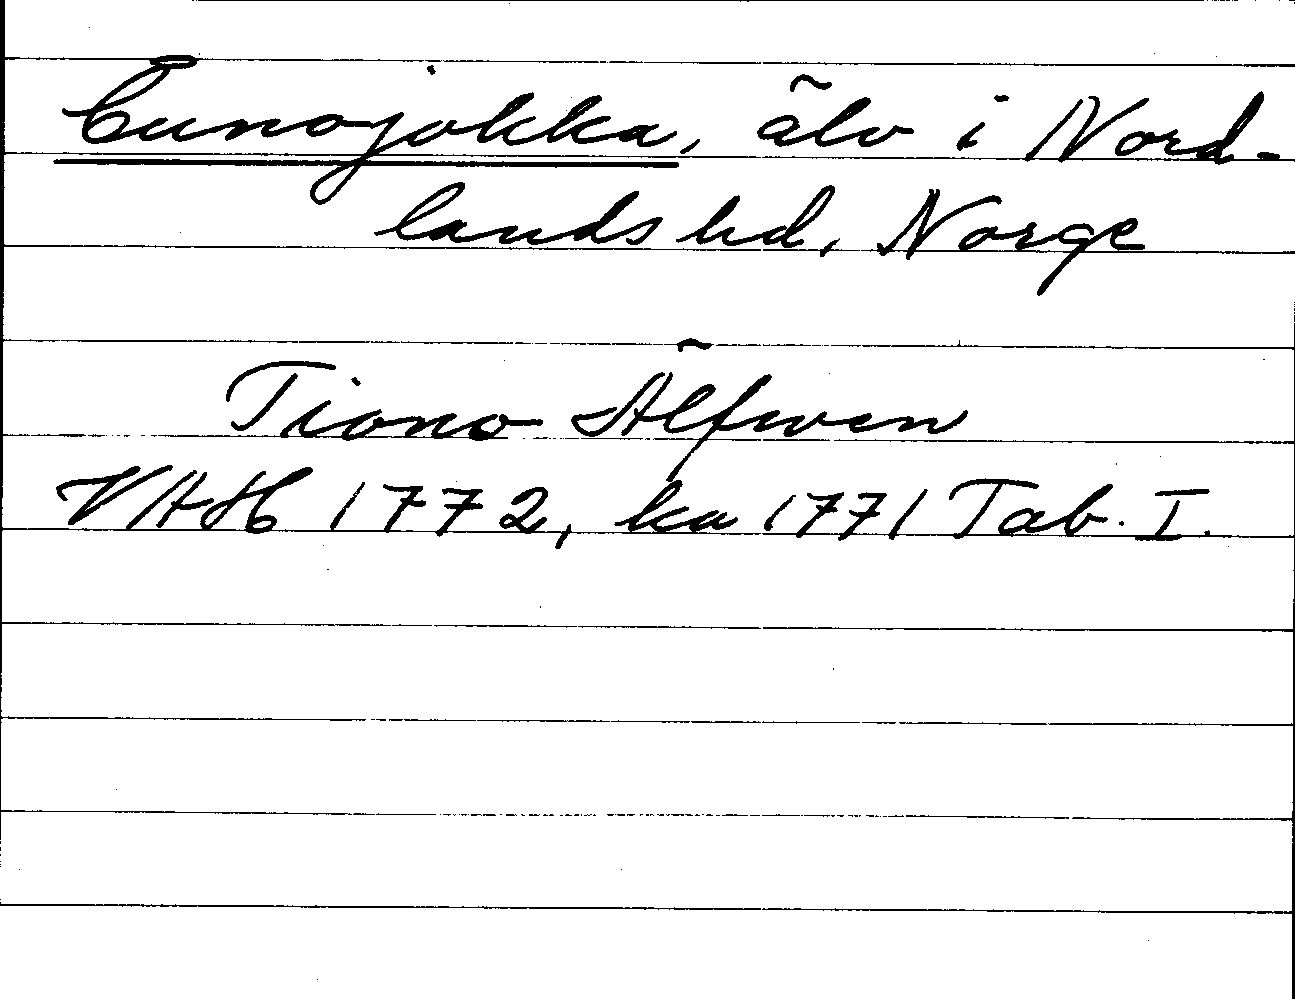 Cunojokka, älv i Nord-
lands hd, Norge
Tiono Älfwen
VAH 1772, ka 1771 Tab. I.